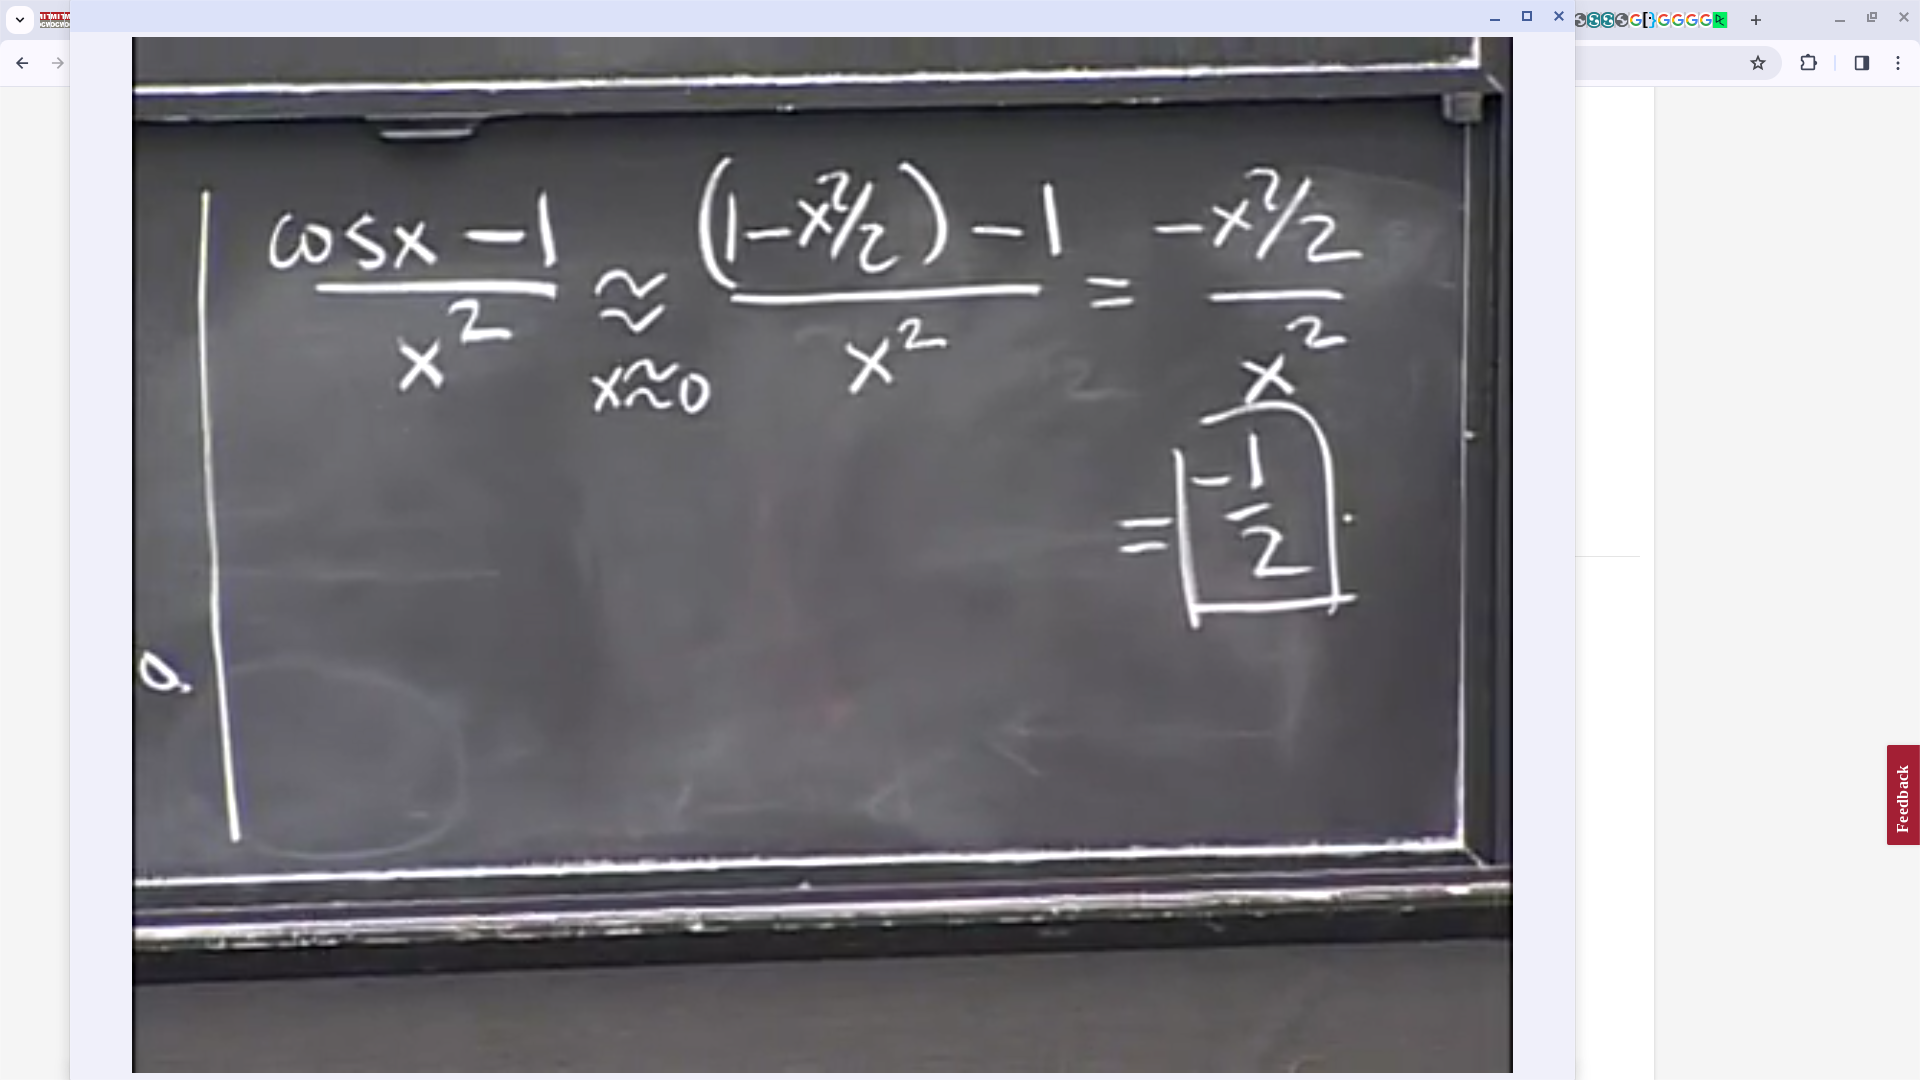 cosx - 1 / x² ≈ (1 - x²/2) - 1 / x² = -x²/2 / x²
x≈0
= -1/2.
0.
Feedback